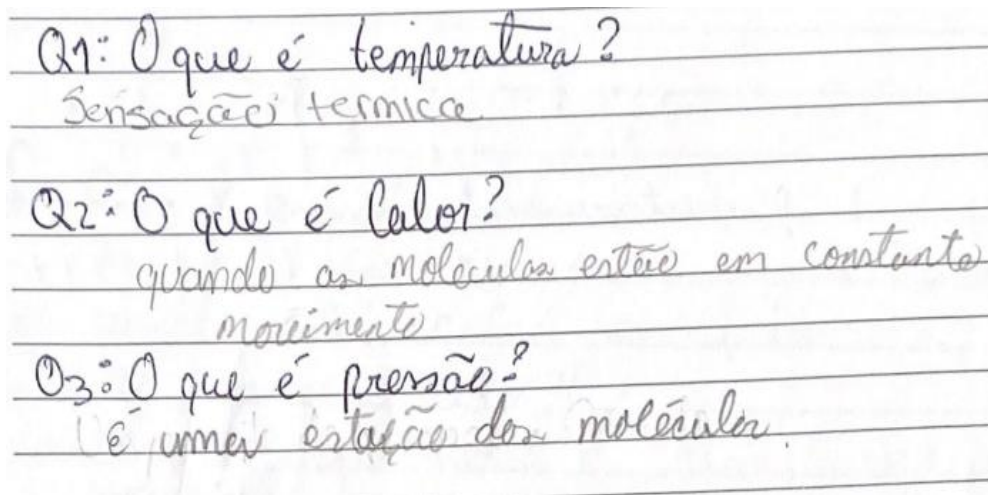 Q1: O que é temperatura?
Sensação termica
Q2: O que é Calor?
quando as moléculas estão em constante
movimento
Q3: O que é pressão?
É uma estação das moléculas.